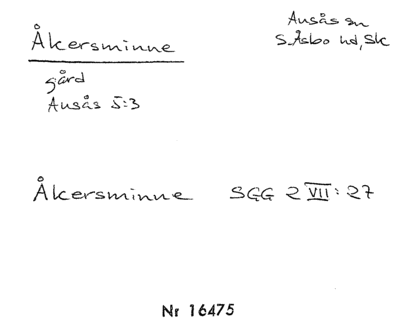 Åkersminne
Ausås sn
S. Åsbo hd, Sk
gård
Ausås 5:3
Åkersminne SGG 2 VII: 27
Nr 16475